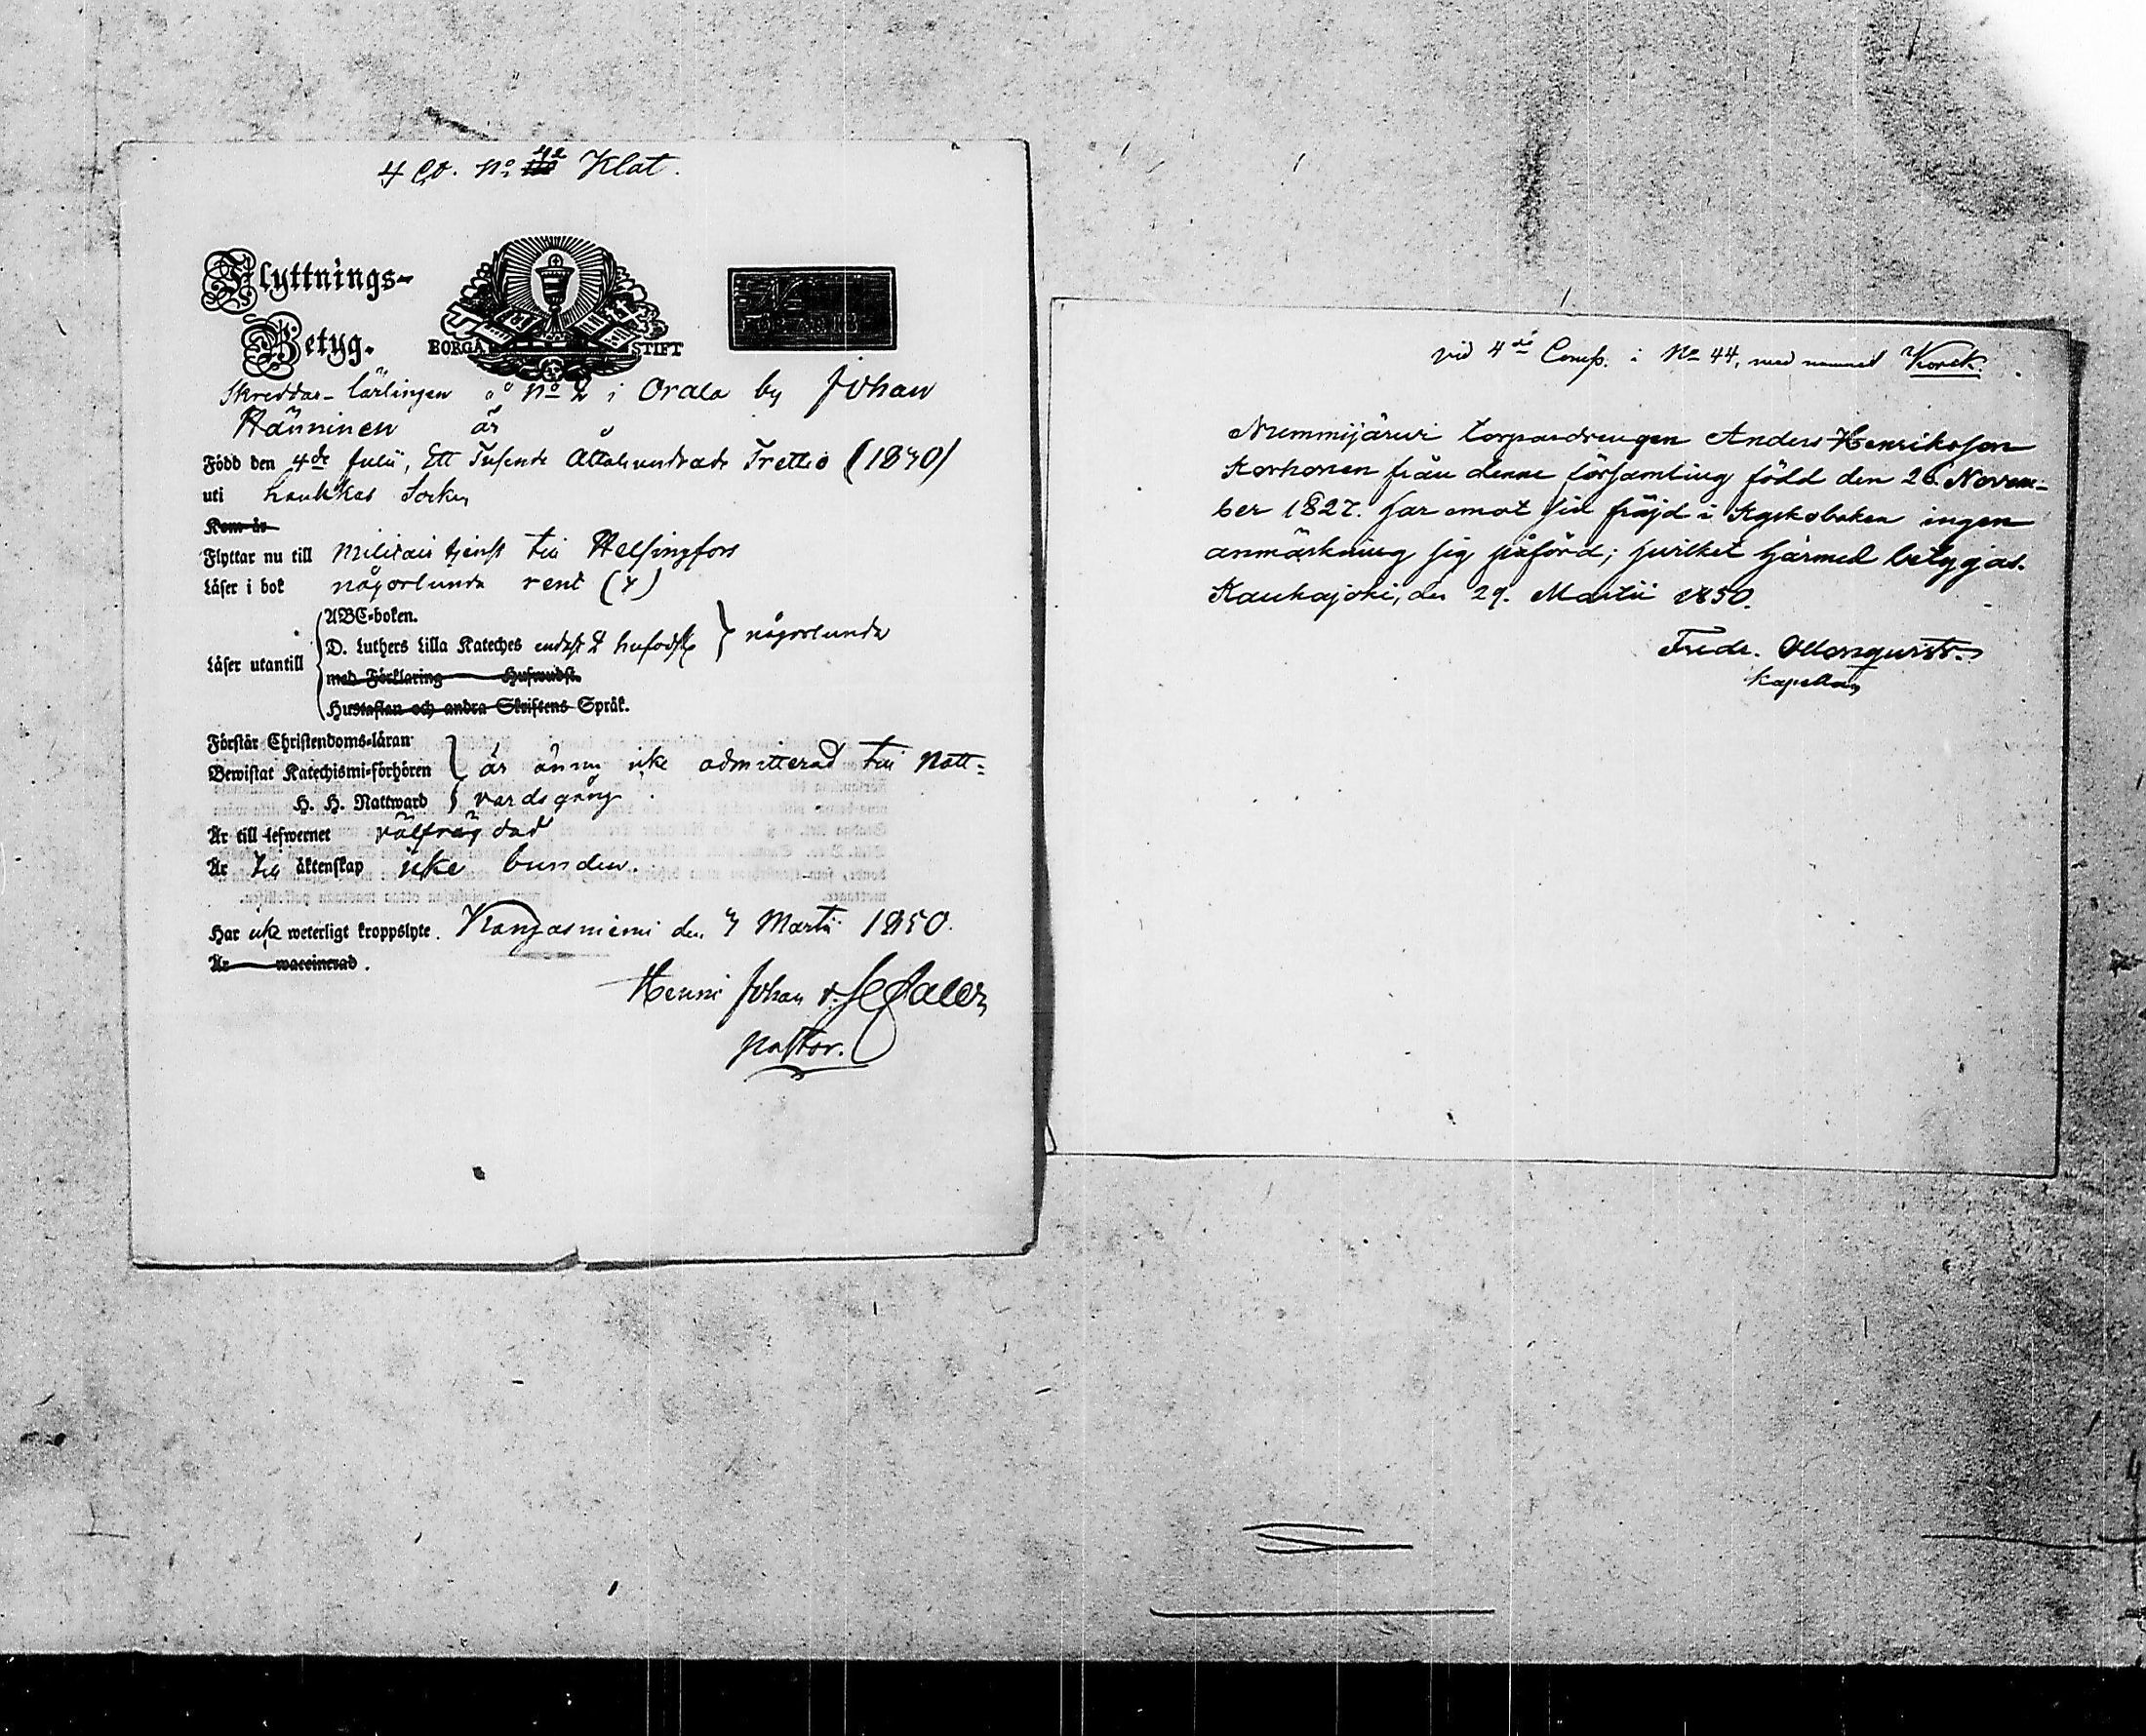 4 Co. No 42 Klat.
Flyttnings-
Betyg.
BORGÅ STIFT
Skreddar-lärlingen å No 2 i Orala by Johan
Hänninen är
Född den 4de Julii, Ett Tusende Åttahundrade Trettio (1830)
uti Haukkas Socken
Kom år
Flyttar nu till Militair tjenst till Helsingfors
Läser i bok någorlunda rent (x)
Läser utantill
ABC-boken.
D. Luthers Lilla Kateches endast 2 hufvudst. någorlunda
med Förklaring Hufwudst.
Hustaflan och andra Skriftens Språk.
Förstår Christendoms-läran
Bewistat Katechismi-förhören är ännu icke admitterad till Natt-
H. H. Nattward vardsgång.
Är till lefwernet välfrägdad
Är till äktenskap icke bunden.
Har icke weterligt kroppslyte. Kangasniemi den 7 Martii 1850.
Är waccinerad.
Henric Johan
pastor.
vid 4de Comp. i No 44, med namnet Korck.
Nummijärvi torpardrengen Anders Henriksson
Korhonen från denne församling född den 26. Novem-
ber 1827. har emot sin fräjd i Kyrkoboken ingen
anmärkning sig påförd; hvilket härmed betygas.
Kauhajoki, den 29. Martii 1850.
Fredr. Ollonqvist.
Kapellan